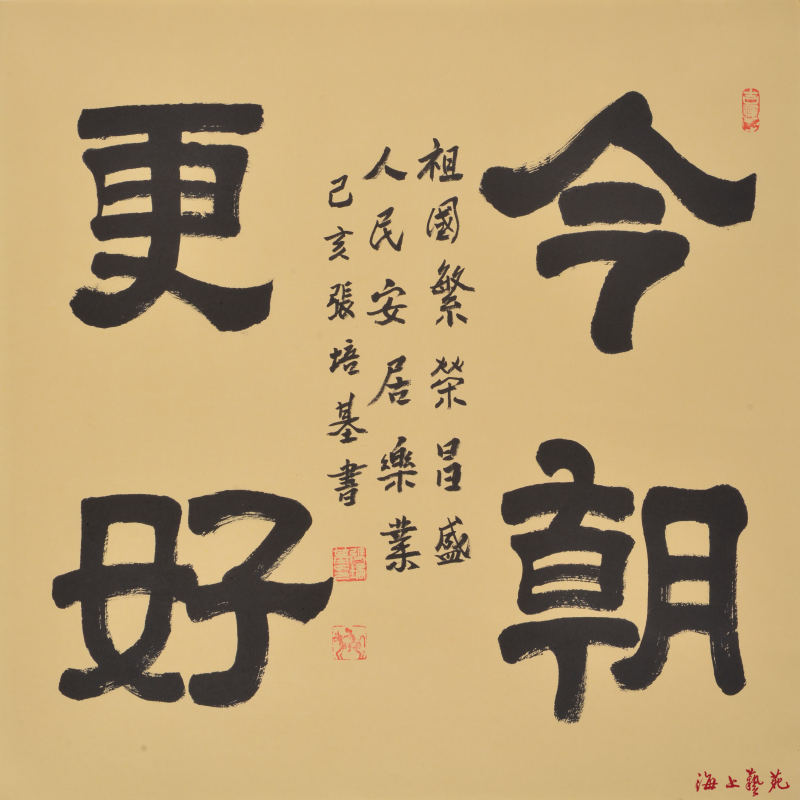 今朝
更好
祖國繁榮昌盛
人民安居樂業
己亥張培基書
海上藝苑